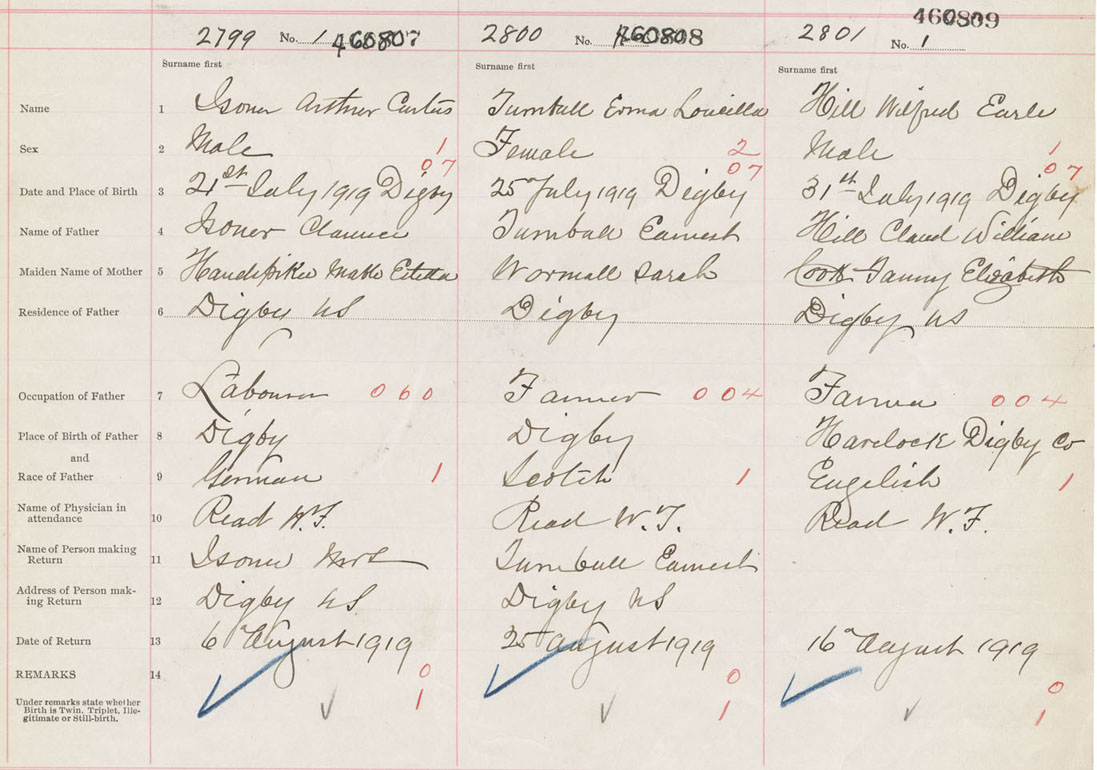 2799 No. 1 460807 2800 No. 460808 2801 No. 1 460809
Surname first Surname first Surname first
Name 1 Isoner Arthur Curtis Turnbull Erma Louiella Hill Wilfred Earle
Sex 2 Male 1 Female 2 Male 1
07 07 07
Date and Place of Birth 3 21st July 1919 Digby 25 July 1919 Digby 31st July 1919 Digby
Name of Father 4 Isoner Clarence Turnbull Earnest Hill Claud William
Maiden Name of Mother 5 Handspiker Wormall Sarah Cook Fanny Elizabeth
Residence of Father 6 Digby NS Digby Digby NS
Occupation of Father 7 Labourer 060 Farmer 004 Farmer 004
Place of Birth of Father 8 Digby Digby Havelock Digby Co
and
Race of Father 9 German 1 Scotch 1 Engelish 1
Name of Physician in
attendance 10 Read W.F. Read W.F. Read W.F.
Name of Person making
Return 11 Isoner Mrs Turnbull Earnest
Address of Person mak-
ing Return 12 Digby NS Digby NS
Date of Return 13 6" August 1919 25 August 1919 16" August 1919
REMARKS 14 0 0 0
Under remarks state whether
Birth is Twin, Triplet, Ille-
gitimate or Still-birth. 1 1 1